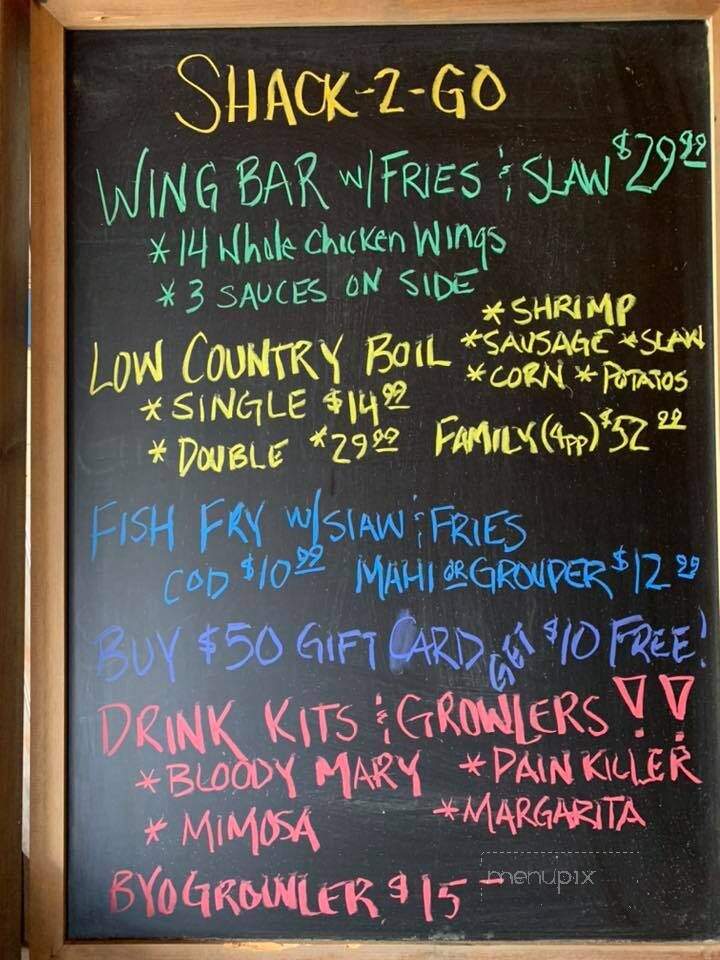 SHACK-2-GO
WING BAR W/FRIES & SLAW $29.99
* 14 Whole Chicken Wings
* 3 SAUCES ON SIDE
LOW COUNTRY BOIL
* SHRIMP
* SAUSAGE * SLAW
* CORN * POTATOS
* SINGLE $14.99
* DOUBLE $29.99 FAMILY (4PP) $52.99
FISH FRY W/SLAW & FRIES
COD $10.99 MAHI OR GROUPER $12.99
BUY $50 GIFT CARD GET $10 FREE!
DRINK KITS & GROWLERS !!
* BLOODY MARY * PAIN KILLER
* MIMOSA * MARGARITA
BYO GROWLER $15 -
menupix